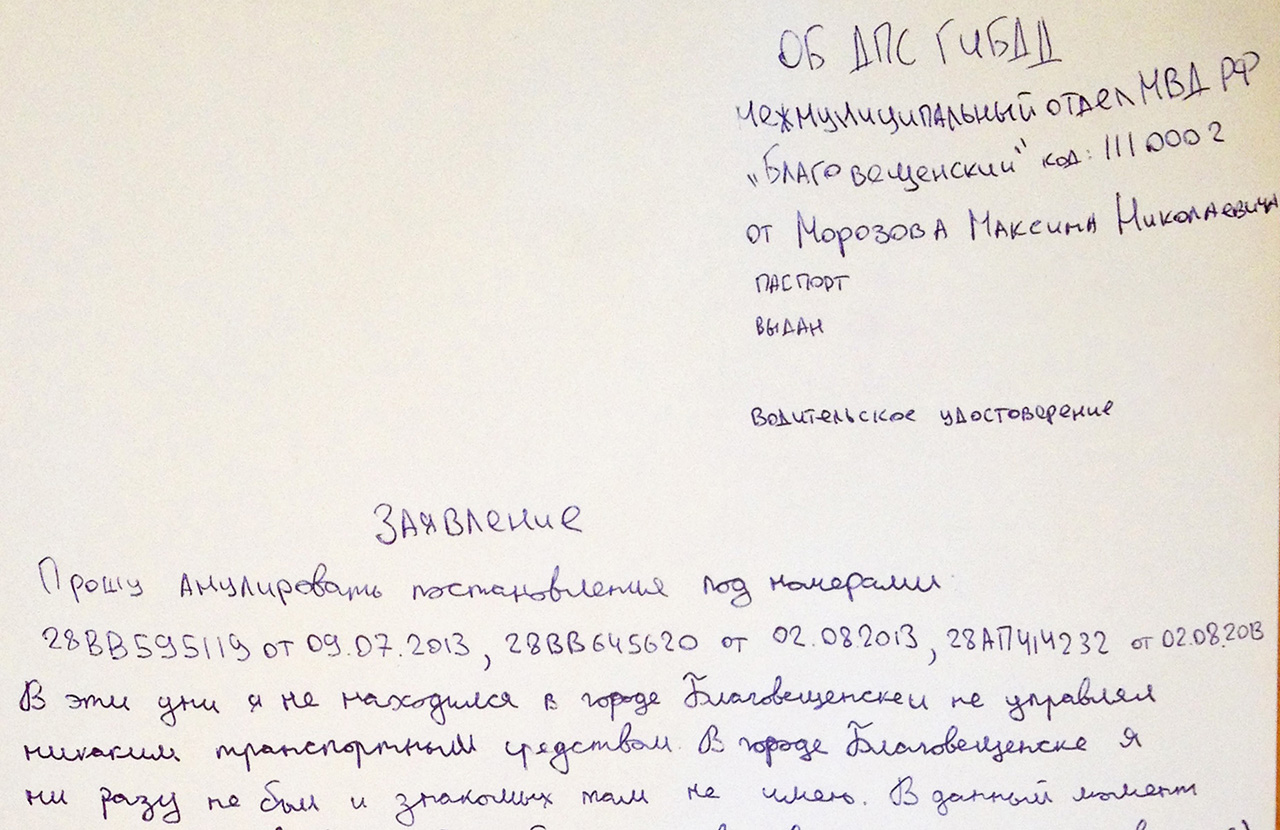 ОБ ДПС ГИБДД
Межмуниципальный отдел МВД РФ
"Благовещенский" код: 1110002
от Морозова Максима Николаевича
паспорт
выдан
водительское удостоверение
Заявление
Прошу анулировать постановления под номерами
28ВВ595119 от 09.07.2013, 28ВВ645620 от 02.08.2013, 28АП414232 от 02.08.2013
В эти дни я не находился в городе Благовещенске и не управлял
никаким транспортным средством. В городе Благовещенске я
ни разу не был и знакомых там не имею. В данный момент